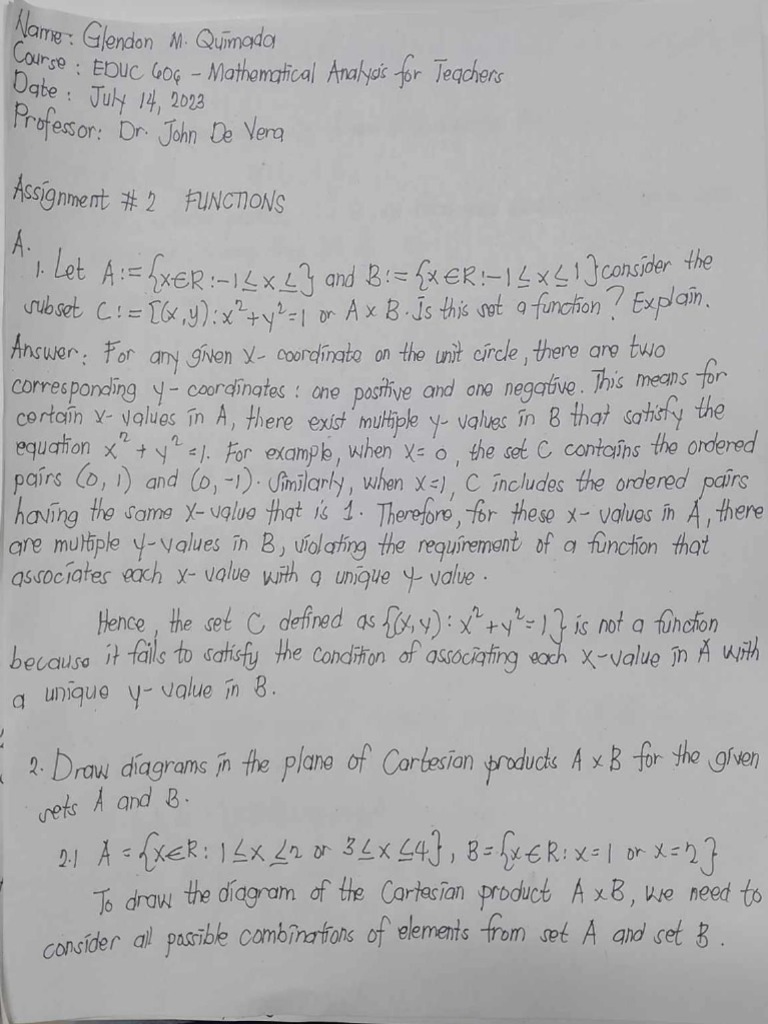 Name: Glendon M. Quimada
Course: EDUC 606 - Mathematical Analysis for Teachers
Date: July 14, 2023
Professor: Dr. John De Vera
Assignment # 2 FUNCTIONS
A.
1. Let A:= {x∈R:-1≤x≤} and B:= {x∈R:-1≤x≤1} consider the
subset C:= [(x,y): x²+y²=1 or A x B. Is this set a function? Explain.
Answer: For any given x- coordinate on the unit circle, there are two
corresponding y- coordinates: one positive and one negative. This means for
certain x- values in A, there exist multiple y- values in B that satisfy the
equation x² + y² =1. For example, when x= 0, the set C contains the ordered
pairs (0, 1) and (0, -1). Similarly, when x=1, C includes the ordered pairs
having the same x-value that is 1. Therefore, for these x- values in A, there
are multiple y-values in B, violating the requirement of a function that
associates each x- value with a unique y- value.
Hence, the set C defined as {(x,y): x²+y²=1} is not a function
because it fails to satisfy the condition of associating each x-value in A with
a unique y- value in B.
2. Draw diagrams in the plane of Cartesian products A x B for the given
sets A and B.
2.1 A = {x∈R: 1≤x≤2 or 3≤x≤4}, B= {x∈R: x=1 or x=2}
To draw the diagram of the Cartesian product A x B, we need to
consider all possible combinations of elements from set A and set B.